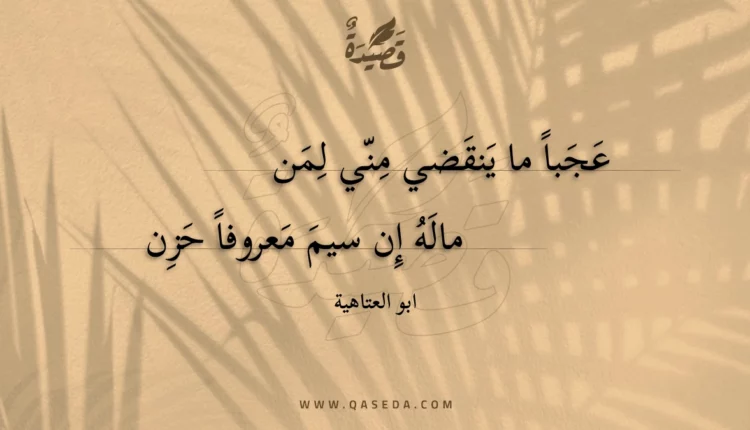 قَصِيْدَةٌ
عَجَباً ما يَنقَضي مِنّي لِمَن
مالَهُ إِن سيمَ مَعروفاً حَزِن
ابو العتاهية
WWW.QASEDA.COM